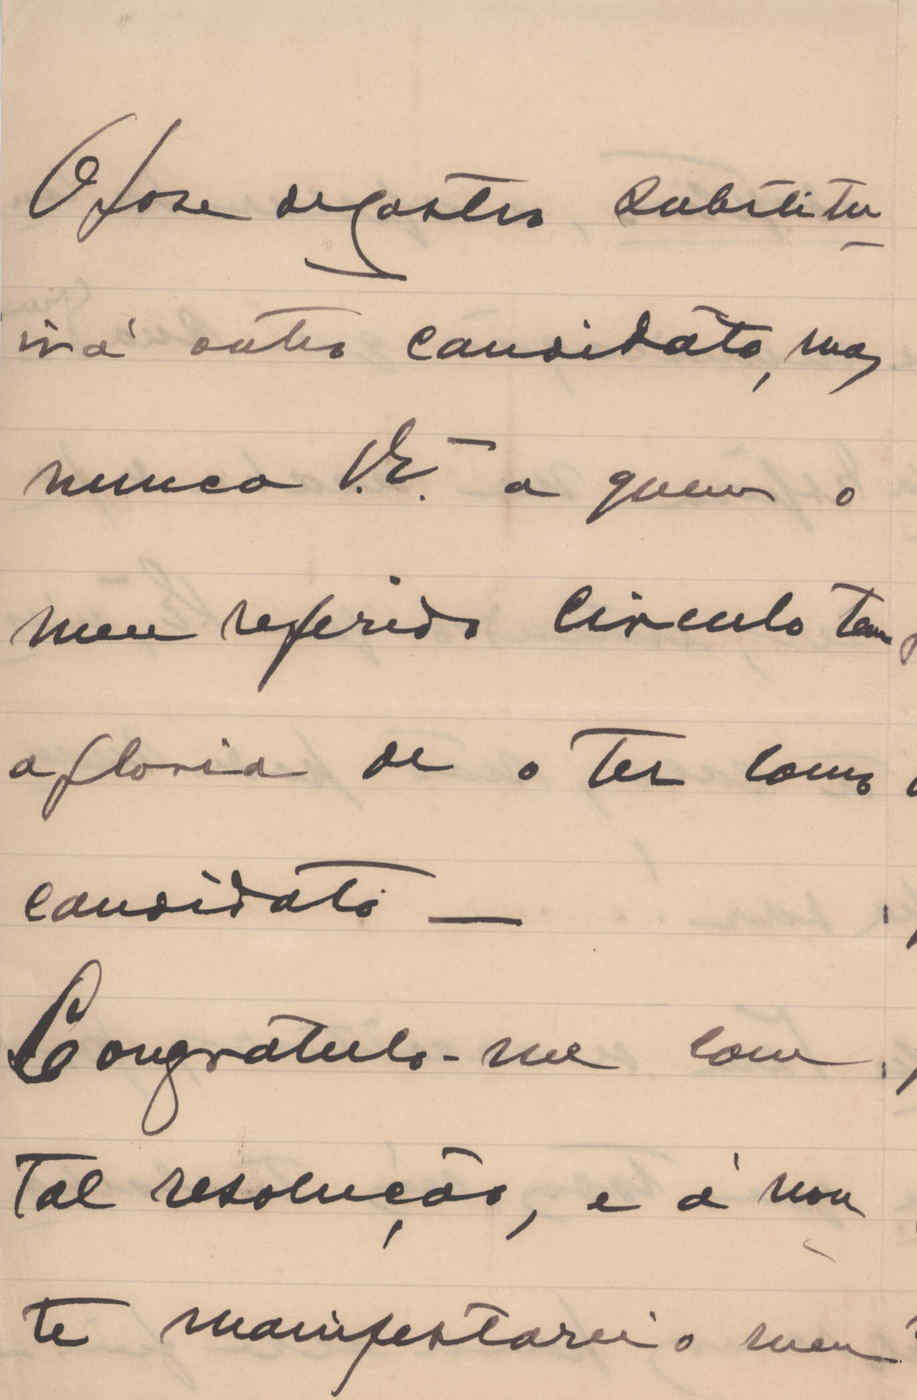 O José de Castro substitu-
irá outro candidato, mas
nunca V. Ex.ª a quem o
meu referido circulo tem
a gloria de o ter como
candidato —
Congratulo-me com
tal resolução, e á noi
te manifestarei o meu